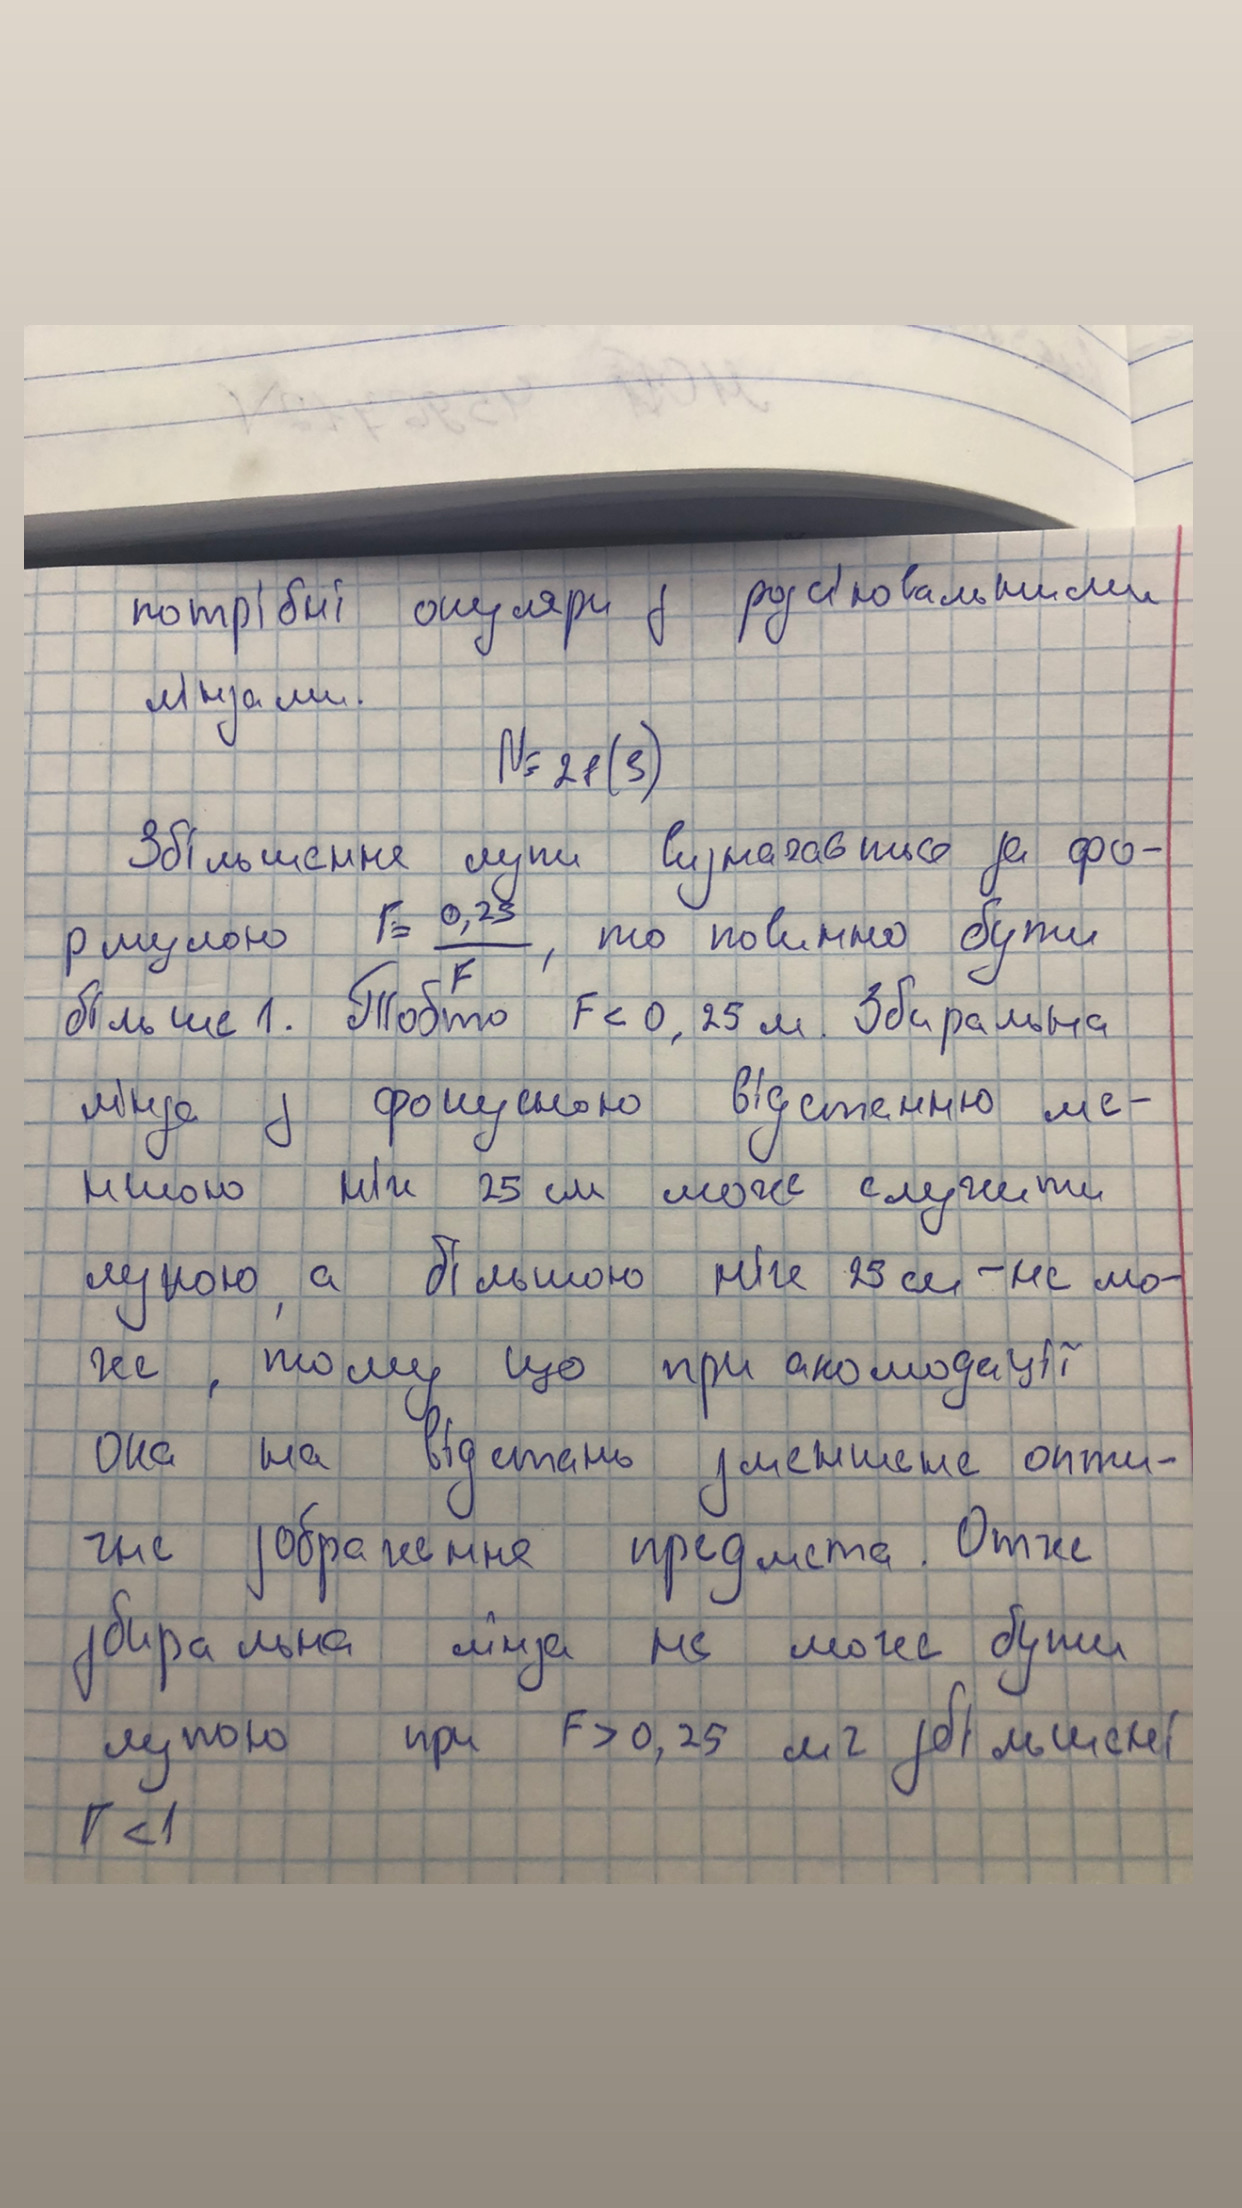 потрібні окуляри з розсіювальними
лінзами.
№ 21(3)
Збільшення лупи визначається за фо-
рмулою Г= 0,25/F, то повинно бути
більше 1. Тобто F < 0,25 м. Збиральна
лінза з фокусною відстанню ме-
ншою ніж 25 см може служити
лупою, а більшою ніж 25 см - не мо-
же, тому що при акомодації
ока на відстань зменшене опти-
чне зображення предмета. Отже
збиральна лінза не може бути
лупою при F > 0,25 м і збільшені
Г < 1